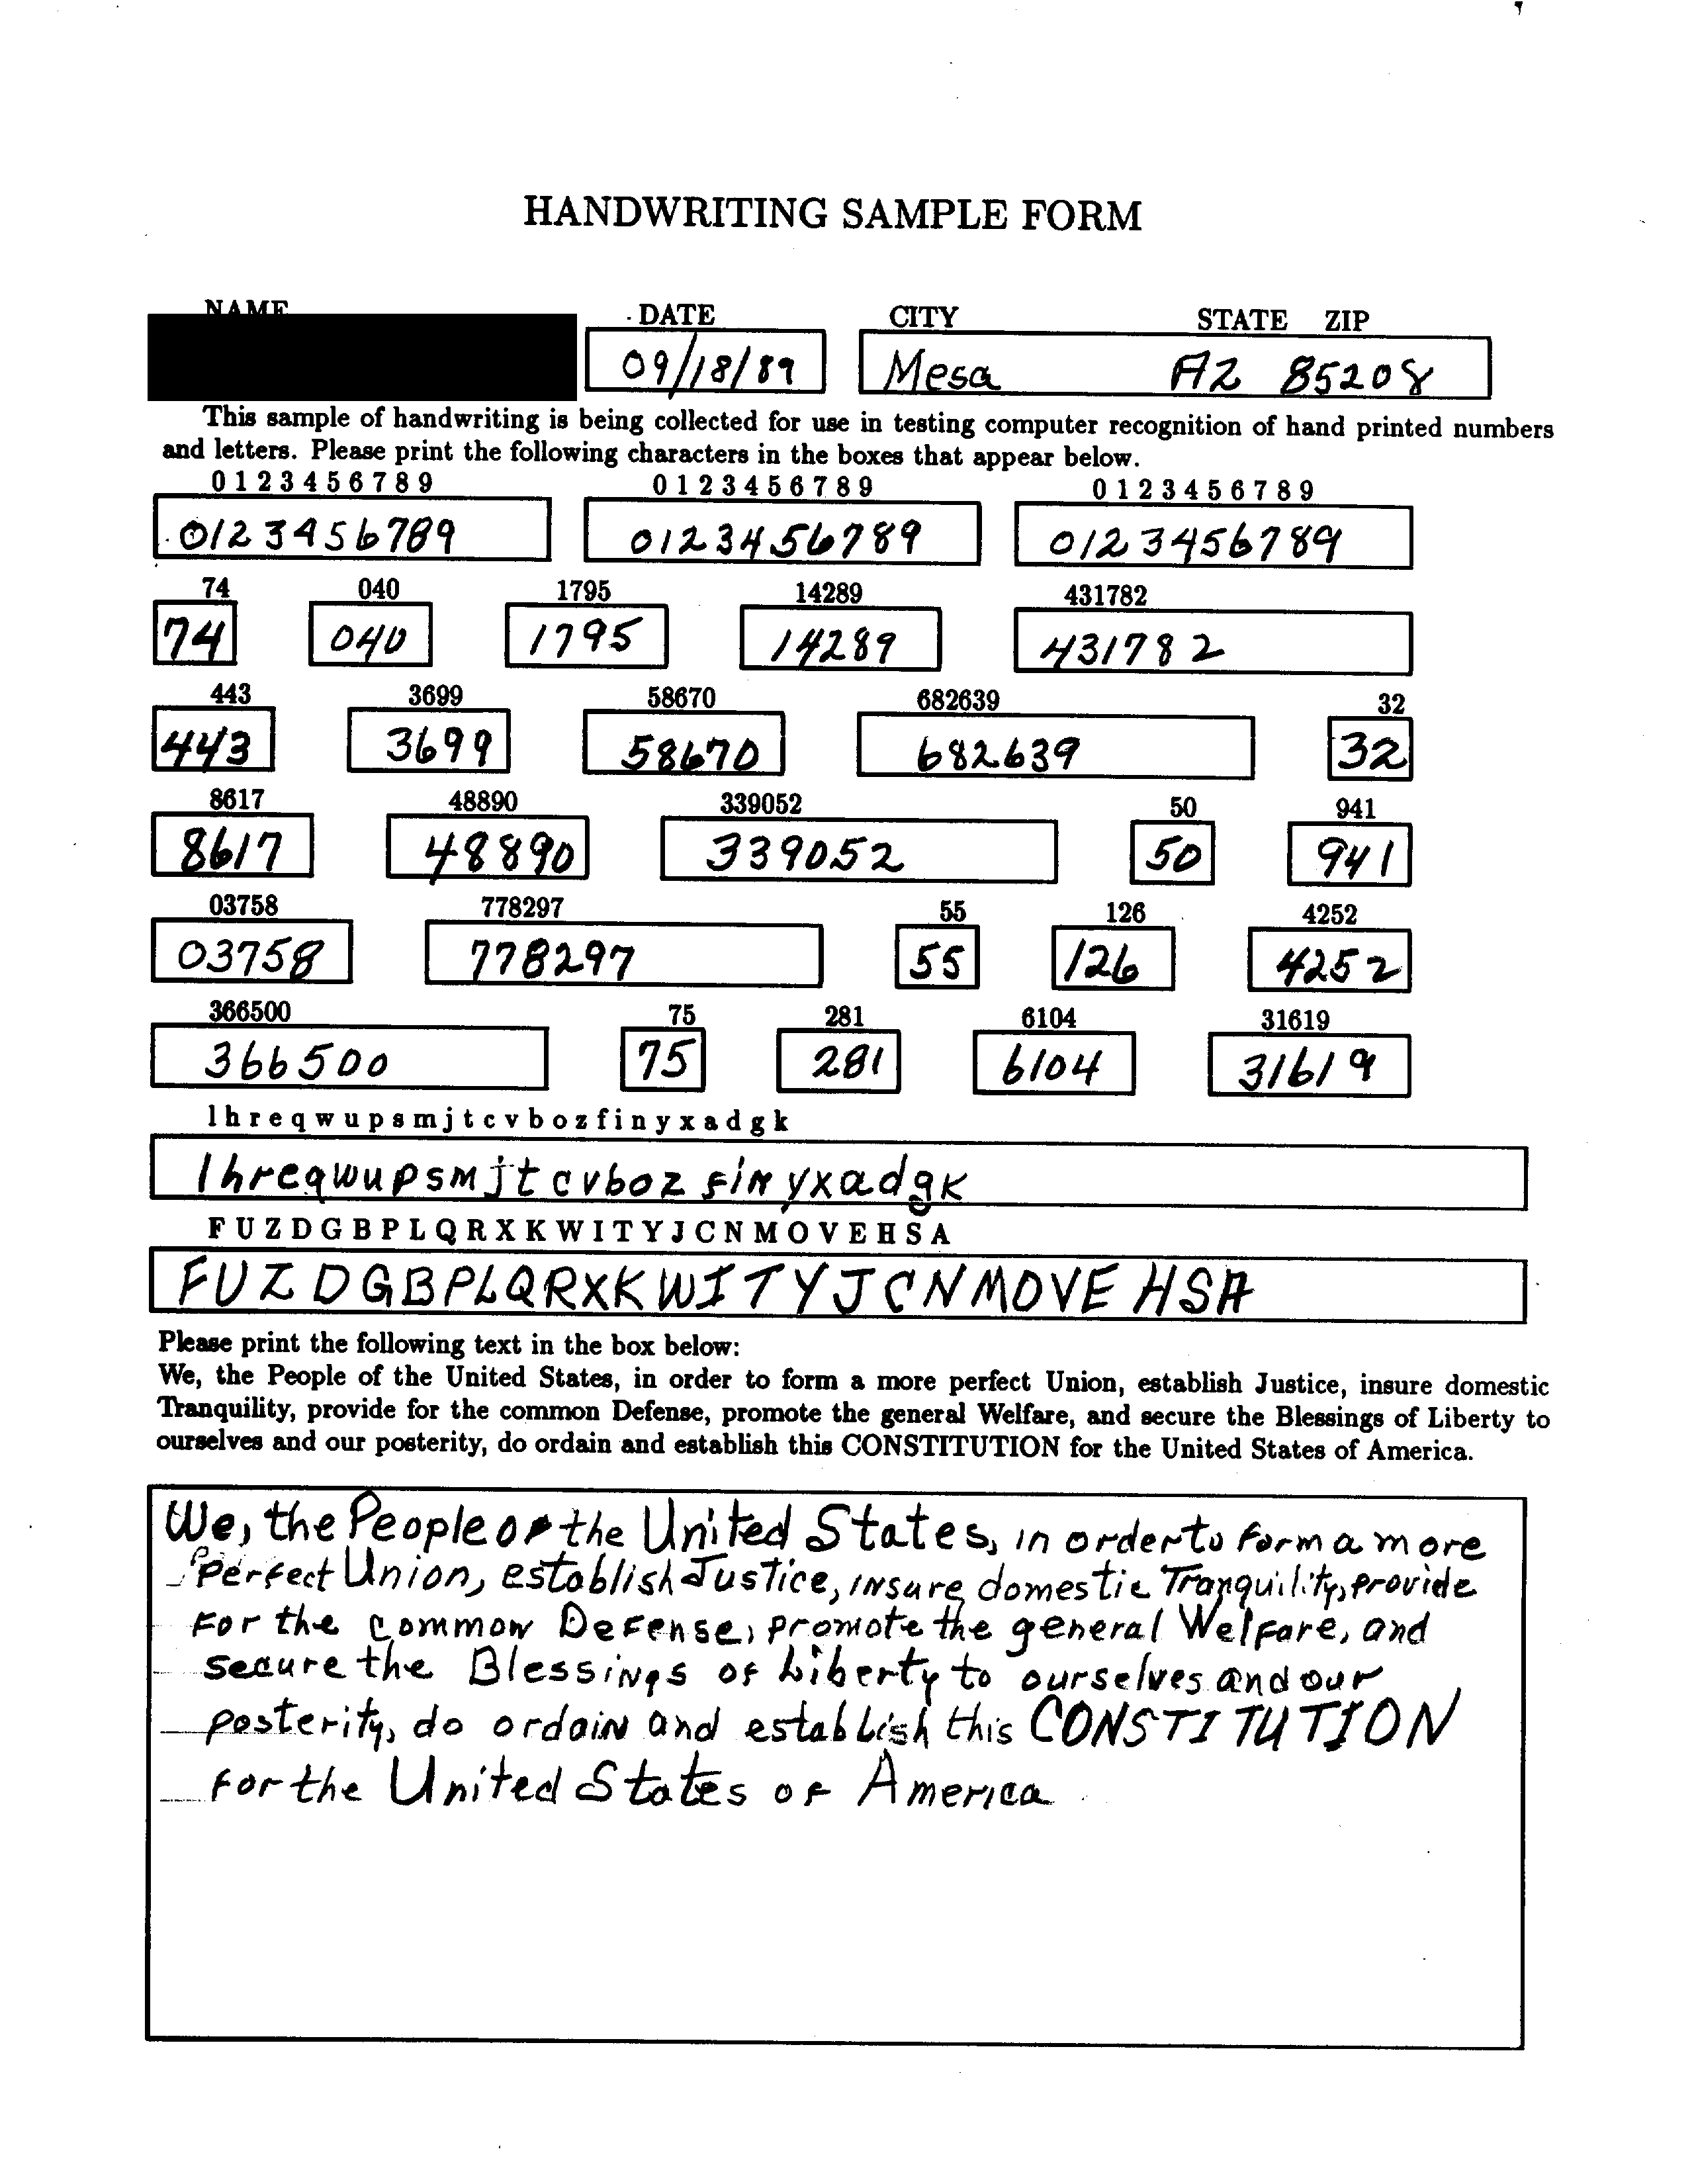 HANDWRITING SAMPLE FORM
NAME DATE CITY STATE ZIP
09/18/89 Mesa AZ 85208
This sample of handwriting is being collected for use in testing computer recognition of hand printed numbers
and letters. Please print the following characters in the boxes that appear below.
0 1 2 3 4 5 6 7 8 9 0 1 2 3 4 5 6 7 8 9 0 1 2 3 4 5 6 7 8 9
0123456789 0123456789 0123456789
74 040 1795 14289 431782
74 040 1795 14289 431782
443 3699 58670 682639 32
443 3699 58670 682639 32
8617 48890 339052 50 941
8617 48890 339052 50 941
03758 778297 55 126 4252
03758 778297 55 126 4252
366500 75 281 6104 31619
366500 75 281 6104 31619
l h r e q w u p s m j t c v b o z f i n y x a d g k
lhreqwupsmjtcvbozfinyxadgk
F U Z D G B P L Q R X K W I T Y J C N M O V E H S A
FUZDGBPLQRXKWITYJCNMOVEHSA
Please print the following text in the box below:
We, the People of the United States, in order to form a more perfect Union, establish Justice, insure domestic
Tranquility, provide for the common Defense, promote the general Welfare, and secure the Blessings of Liberty to
ourselves and our posterity, do ordain and establish this CONSTITUTION for the United States of America.
We, the People of the United States, in order to form a more
Perfect Union, establish Justice, insure domestic Tranquility, provide
for the common Defense, promote the general Welfare, and
secure the Blessings of Liberty to ourselves and our
posterity, do ordain and establish this CONSTITUTION
for the United States of America